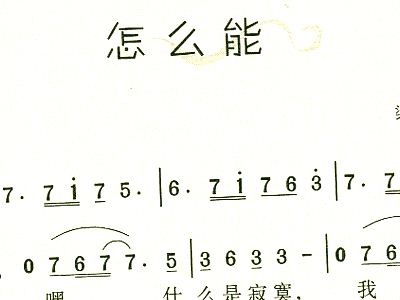 怎么能
7. 7 i 7 5. | 6. 7 i 7 6 3 | 7. 7
0 7 6 7 7. 5 | 3 6 3 3 - | 0 7 6
嘿 什么是寂寞, 我